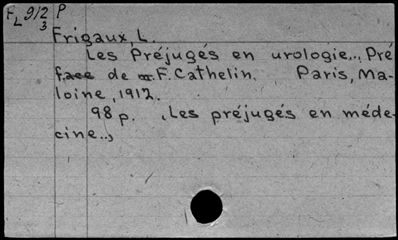 FL 9/2 P
3
Frigaux, L.
Les Préjugés en urologie... Pré
face de F. Cathelin. Paris, Ma-
loine, 1912.
98 p. (Les préjugés en méde-
cine..)